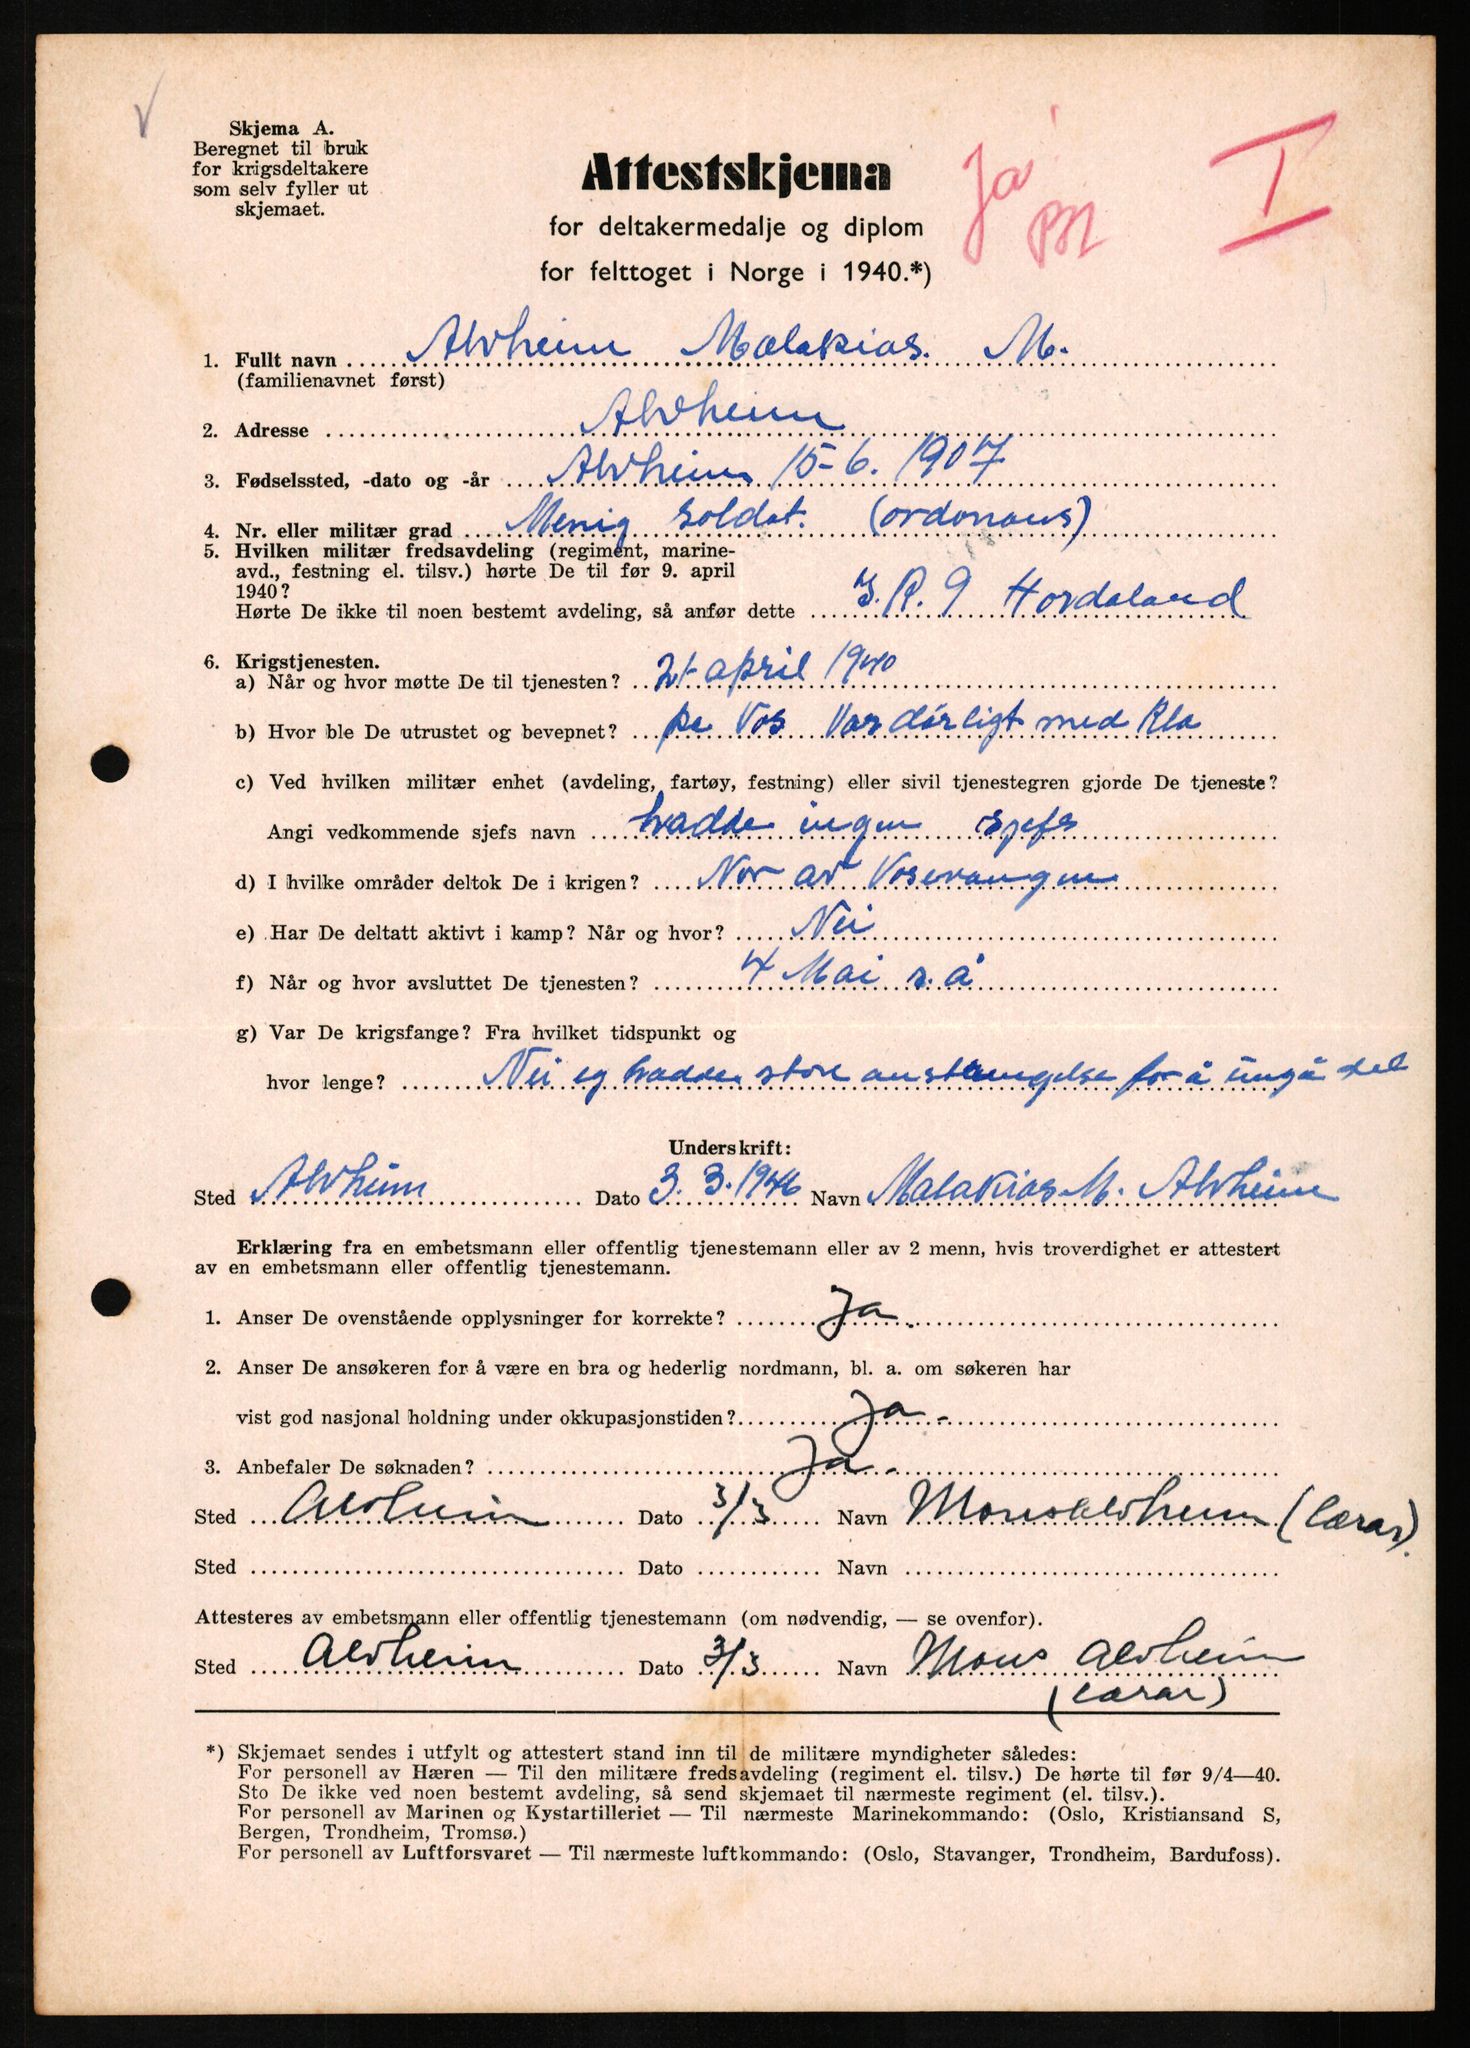 Skjema A.
Beregnet til bruk
for krigsdeltakere
som selv fyller ut
skjemaet.
Attestskjema
for deltakermedalje og diplom
for felttoget i Norge i 1940.*)
Ja
I
1. Fullt navn Alvheim Malakias. M.
(familienavnet først)
2. Adresse Alvheim
3. Fødselssted, -dato og -år Alvheim 15-6. 1907
4. Nr. eller militær grad Menig soldat. (ordonans)
5. Hvilken militær fredsavdeling (regiment, marine-
avd., festning el. tilsv.) hørte De til før 9. april
1940?
Hørte De ikke til noen bestemt avdeling, så anfør dette I.R. 9 Hordaland
6. Krigstjenesten.
a) Når og hvor møtte De til tjenesten? 21 april 1940
b) Hvor ble De utrustet og bevepnet? pa Vos Var dårligt med kla
c) Ved hvilken militær enhet (avdeling, fartøy, festning) eller sivil tjenestegren gjorde De tjeneste?
Angi vedkommende sjefs navn hadde ingen sjefs
d) I hvilke områder deltok De i krigen? Nor av Vosevangen
e) Har De deltatt aktivt i kamp? Når og hvor? Nei
f) Når og hvor avsluttet De tjenesten? 4 Mai s. å
g) Var De krigsfange? Fra hvilket tidspunkt og
hvor lenge? Nei eg hadde store anstrengelse for å ungå del
Underskrift:
Sted Alvheim Dato 3. 3. 1946 Navn Malakias M. Alvheim
Erklæring fra en embetsmann eller offentlig tjenestemann eller av 2 menn, hvis troverdighet er attestert
av en embetsmann eller offentlig tjenestemann.
1. Anser De ovenstående opplysninger for korrekte? Ja.
2. Anser De ansøkeren for å være en bra og hederlig nordmann, bl. a. om søkeren har
vist god nasjonal holdning under okkupasjonstiden? Ja -
3. Anbefaler De søknaden? Ja -
Sted Alvheim Dato 3/3 Navn Mons Alvheim (Lærar).
Sted Dato Navn
Attesteres av embetsmann eller offentlig tjenestemann (om nødvendig, — se ovenfor).
Sted Alvheim Dato 3/3 Navn Mons Alvheim
(Lærar)
*) Skjemaet sendes i utfylt og attestert stand inn til de militære myndigheter således:
For personell av Hæren — Til den militære fredsavdeling (regiment el. tilsv.) De hørte til før 9/4—40.
Sto De ikke ved noen bestemt avdeling, så send skjemaet til nærmeste regiment (el. tilsv.).
For personell av Marinen og Kystartilleriet — Til nærmeste Marinekommando: (Oslo, Kristiansand S,
Bergen, Trondheim, Tromsø.)
For personell av Luftforsvaret — Til nærmeste luftkommando: (Oslo, Stavanger, Trondheim, Bardufoss).